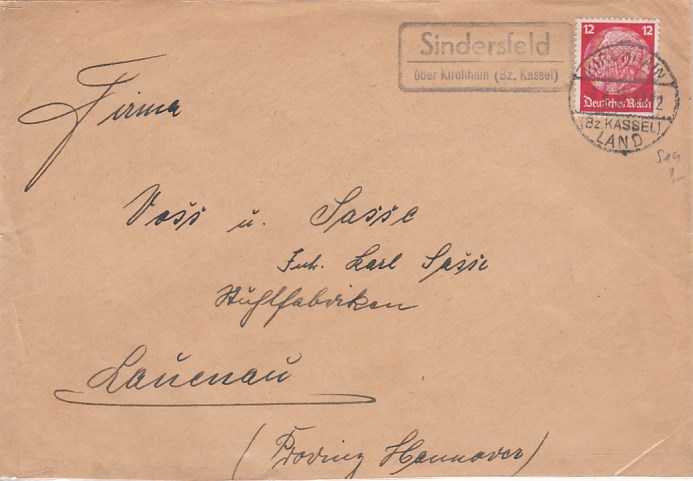 Sindersfeld
über Kirchhain (Bz. Kassel)
12 12
Deutsches Reich
KIRCHHAIN
(Bz. KASSEL)
LAND
Firma
Voss u. Sasse
Inh. Karl Sasse
Stuhlfabriken
Lauenau
(Provinz Hannover)